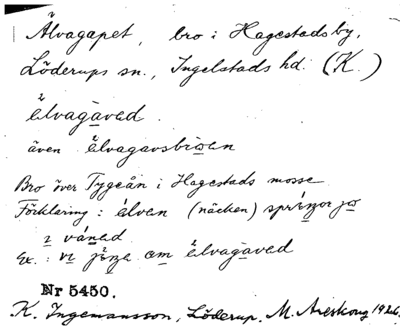 Älvagapet, bro i Hagestads by,
Löderups sn., Ingelstads hd. (K.)
älvagàvad.
även älvagavsbroen
Bro över Tygeån i Hagestads mosse
Förklaring: älven (näcken) springor jo
i vánad
Ex.: vi jinge om älvagàvad
Nr 5450.
K. Ingemansson, Löderup. M. Areskoug 1926.